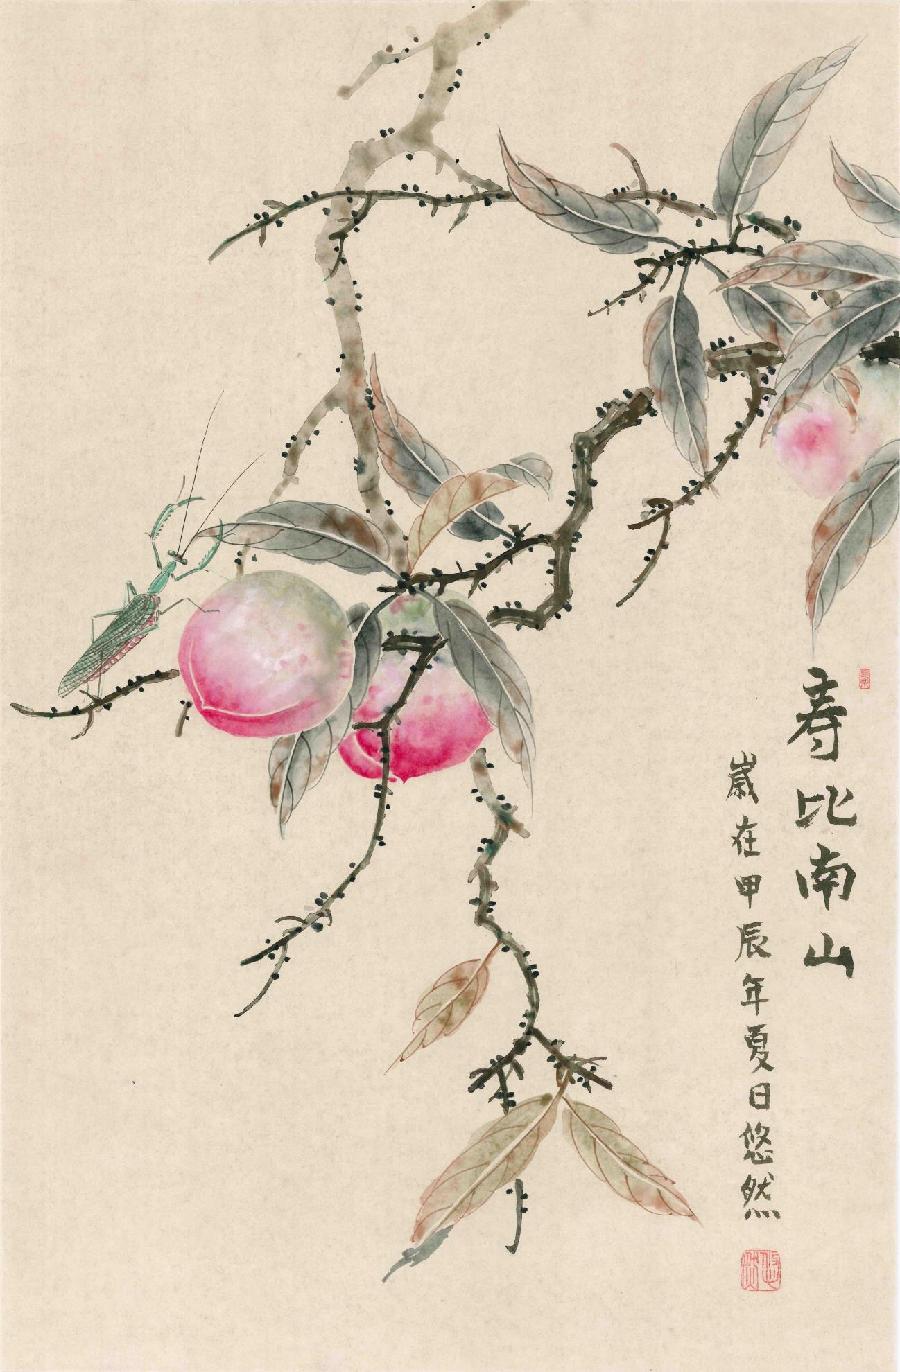 寿比南山
歳在甲辰年夏日悠然
悠然